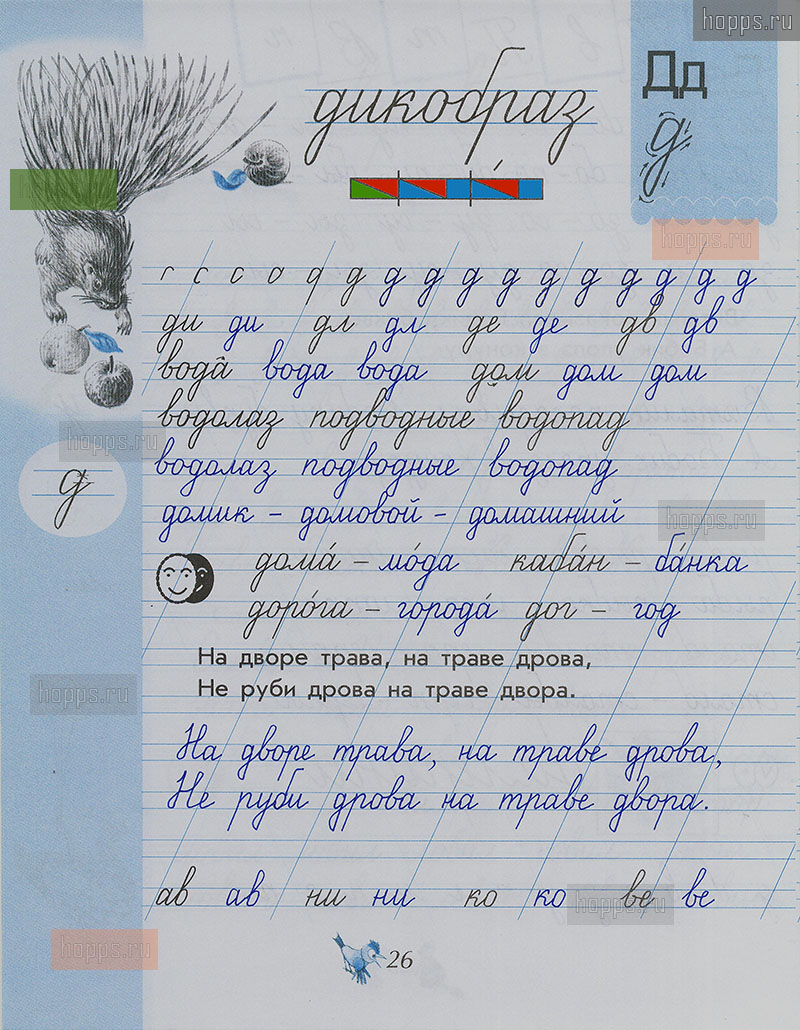 hopps.ru
дикобраз
Дд
д
hopps.ru
г с с о д д д д д д д д д д д д
ди ди дл дл де де дв дв
вода вода вода дом дом дом
водолаз подводные водопад
hopps.ru
водолаз подводные водопад
д
домик – домовой – домашний
hopps.ru
дома́ – мо́да каба́н – ба́нка
доро́га – города́ дог – год
На дворе трава, на траве дрова,
Не руби дрова на траве двора.
hopps.ru
На дворе трава, на траве дрова,
Не руби дрова на траве двора.
ав ав ни ни ко ко ве ве
hopps.ru
hopps.ru
26